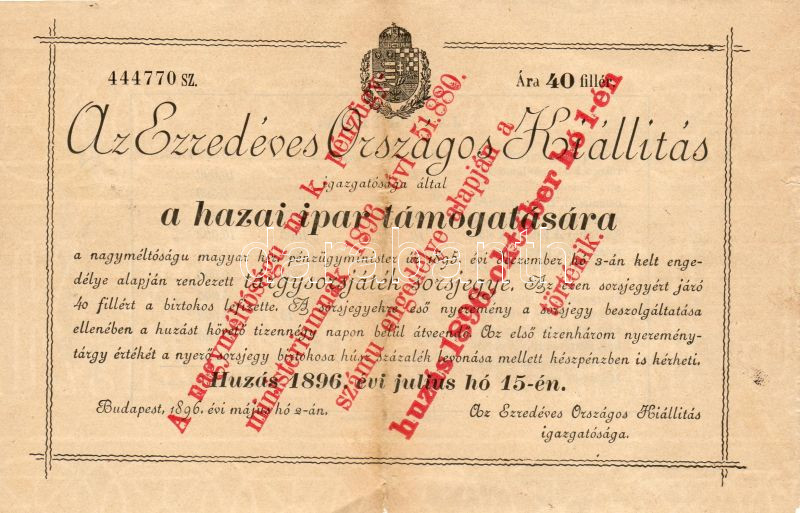 444770 sz.
Ára 40 fillér.
Az Ezredéves Országos Kiállitás
igazgatósága által
a hazai ipar támogatására
a nagyméltóságu magyar kir. pénzügyminister úr 1895. évi deczember hó 3-án kelt enge-
délye alapján rendezett tárgysorsjáték sorsjegye. Az ezen sorsjegyért járó
40 fillért a birtokos lefizette. A sorsjegyekre eső nyeremény a sorsjegy beszolgáltatása
ellenében a huzást követő tizennégy napon belül átveendő. Az első tizenhárom nyeremény-
tárgy értékét a nyerő sorsjegy birtokosa húsz százalék levonása mellett készpénzben is kérheti.
Huzás 1896. évi julius hó 15-én.
Budapest, 1896. évi május hó 2-án.
Az Ezredéves Országos Kiállitás
igazgatósága.
A nagyméltóságu m. k. pénzügy-
ministeriumnak 1896. évi 51.880.
számu engedélye alapján a
huzás 1896. október hó 1-én
történik.
darabanth